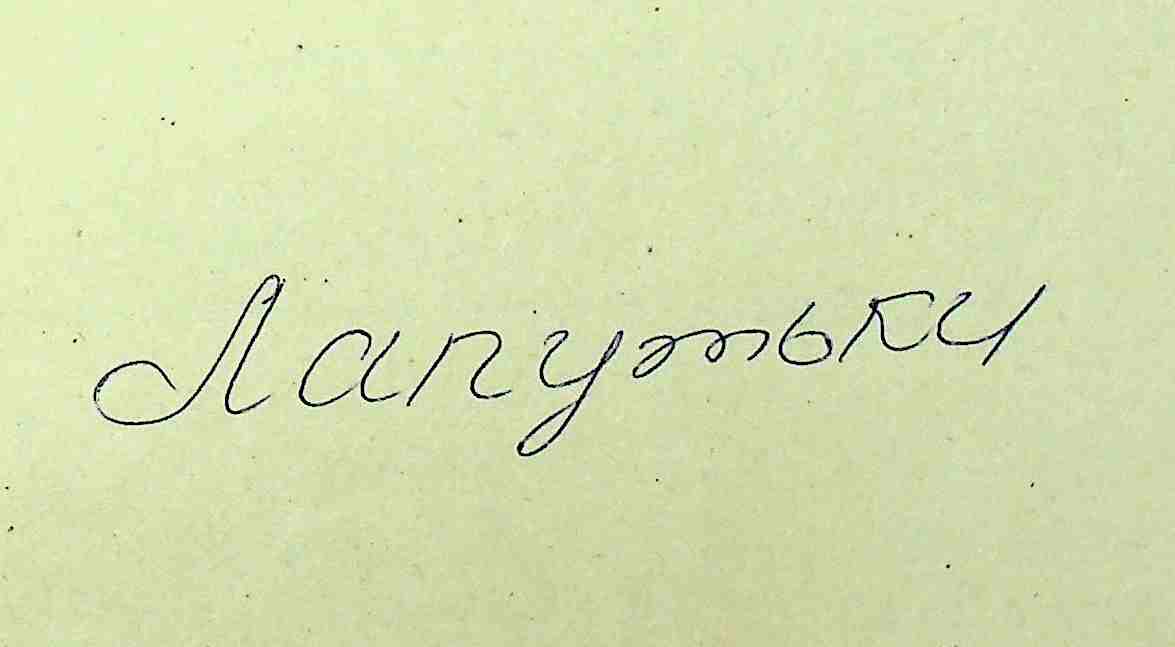 Лапутьки